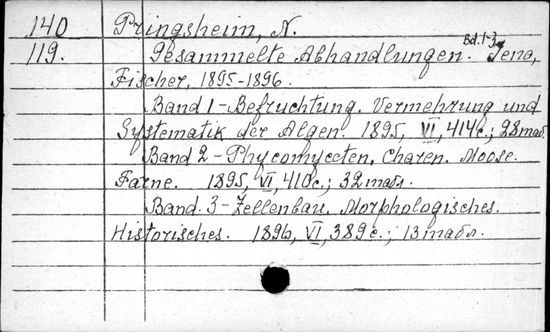 140 Pringsheim, N.
119. Gesammelte Abhandlungen. Bd. 1-3. Jena,
Fischer, 1895-1896.
Band 1 - Befruchtung. Vermehrung und
Systematik der Algen. 1895, VI, 414 с.; 28 табл.
Band 2 - Phycomyceten, Charen. Moose.
Farne. 1895, VI, 410 с.; 32 табл.
Band. 3 - Zellenbau. Morphologisches.
Historisches. 1896, VI, 389 с.; 13 табл.